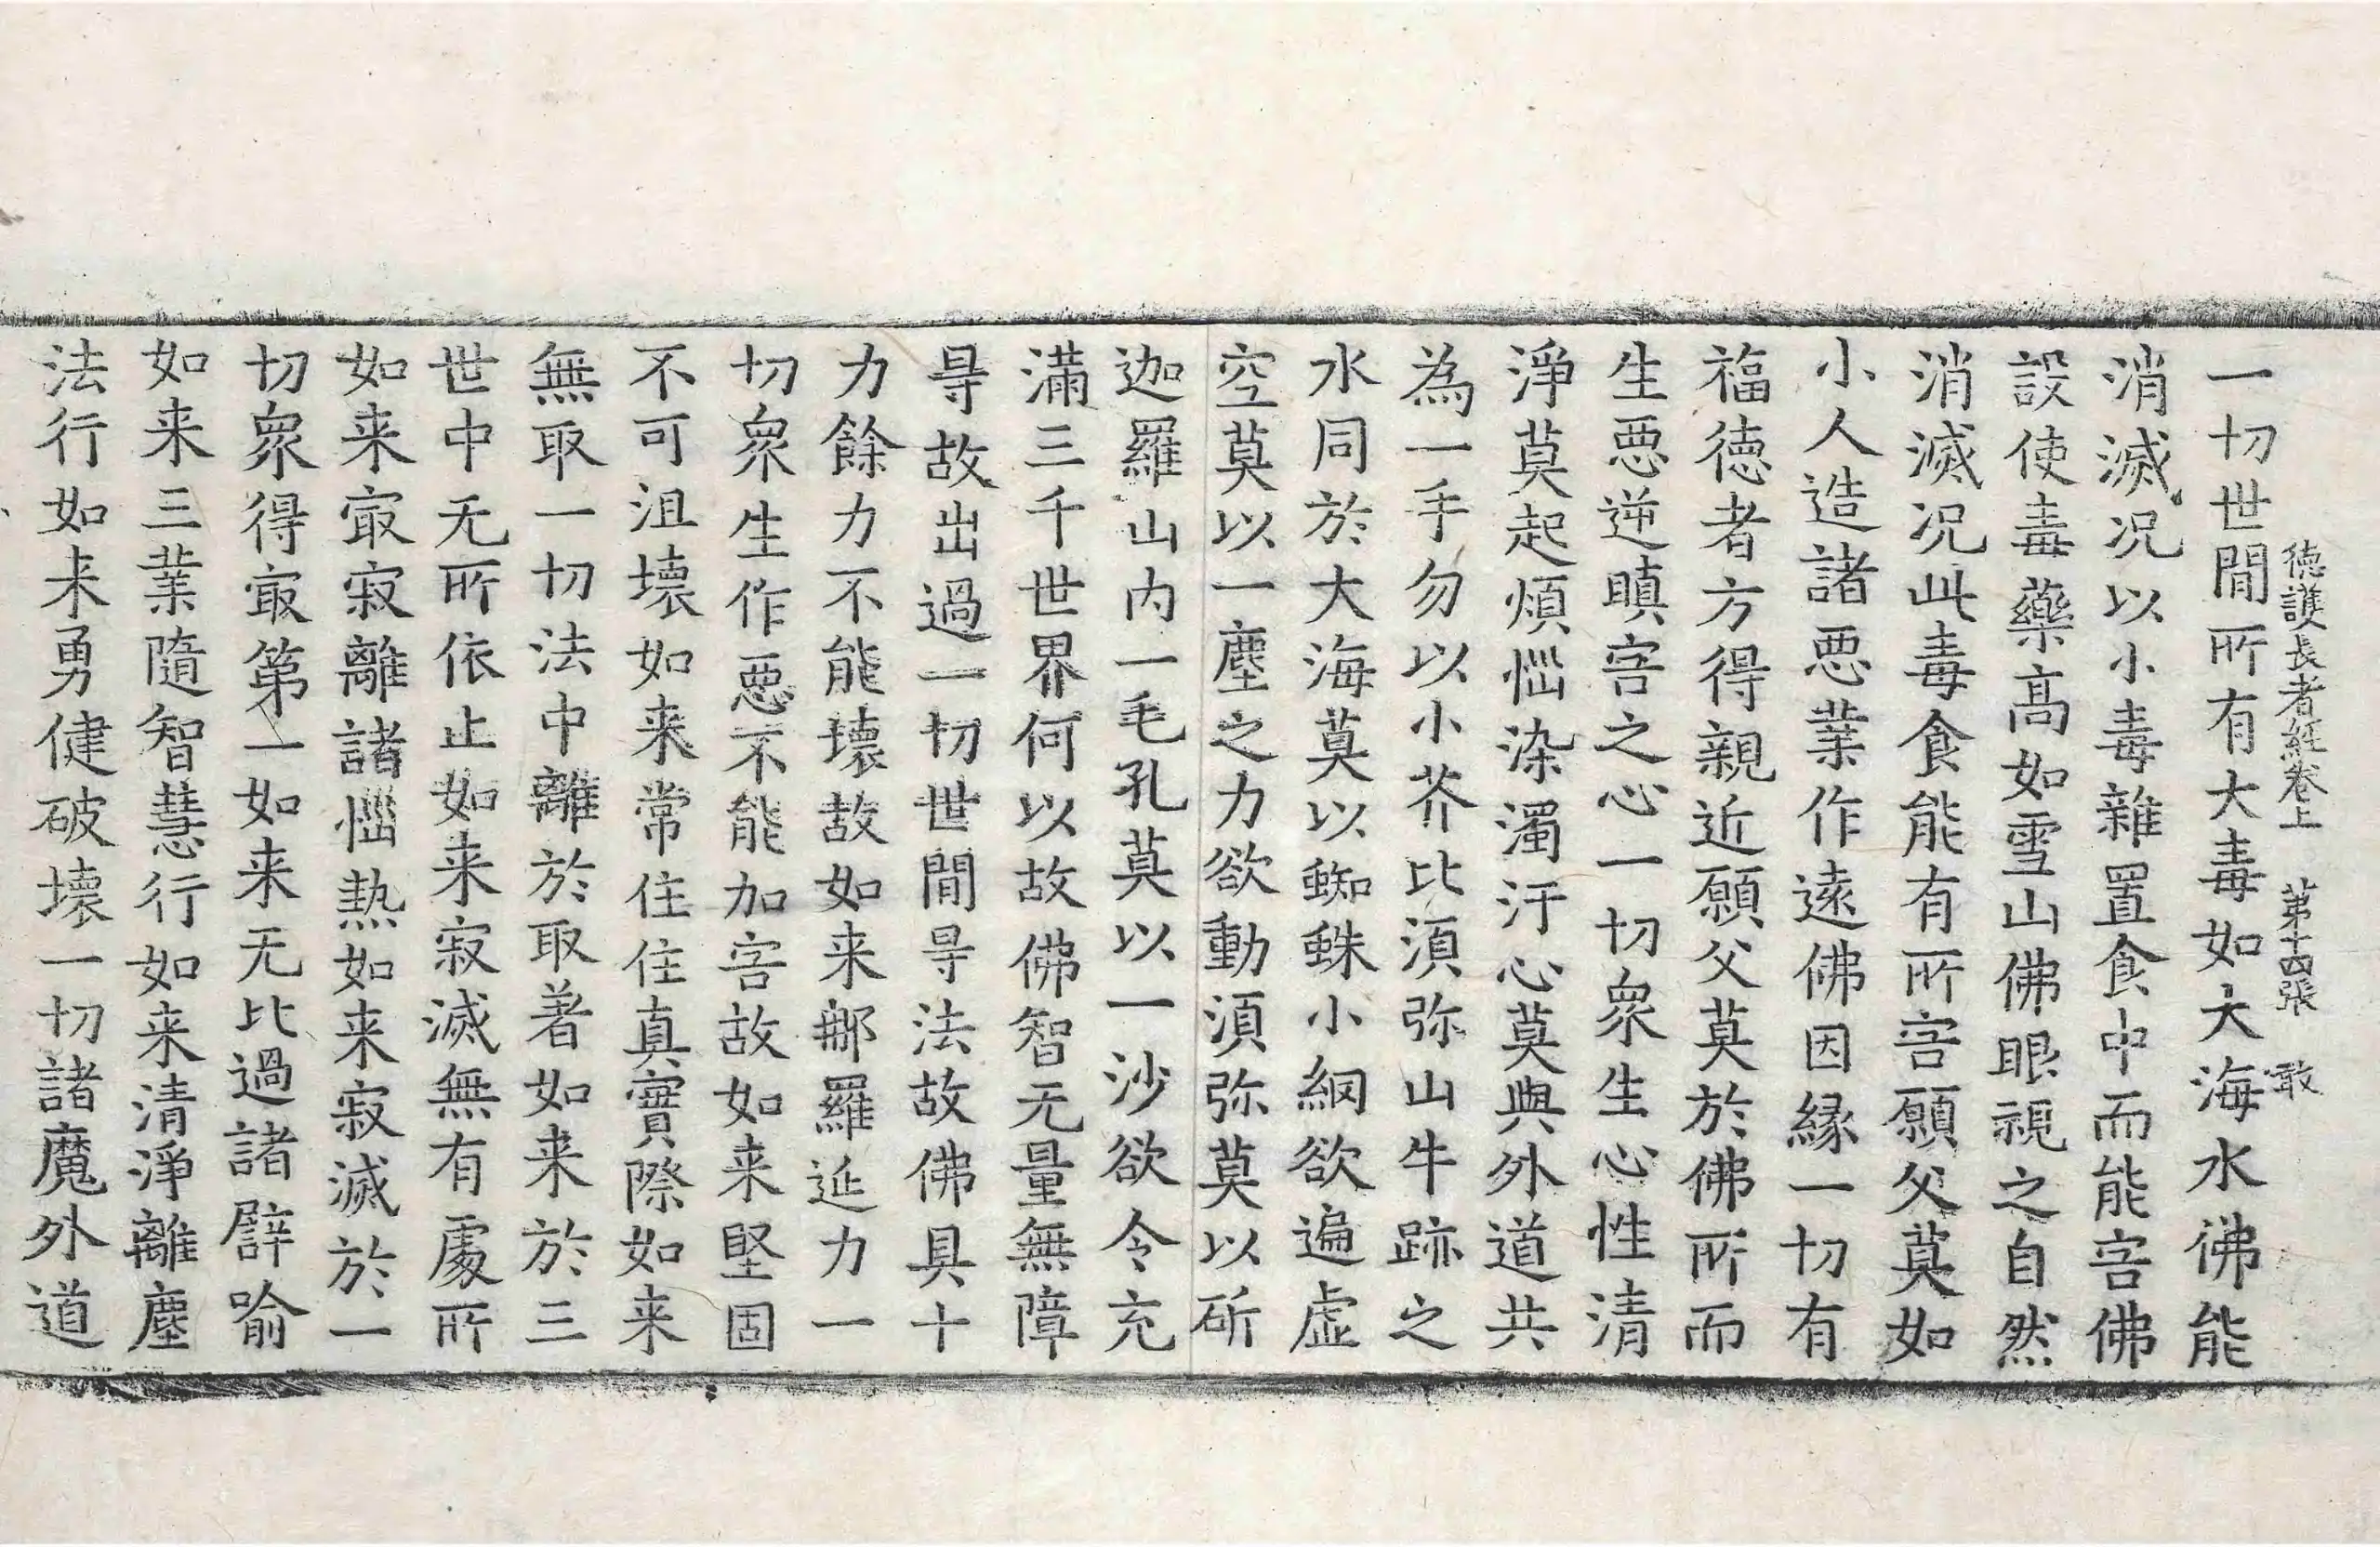 德護長者經卷上 第十四張 敢
一切世閒所有大毒如大海水佛能
消滅况以小毒雜置食中而能害佛
設使毒藥高如雪山佛眼視之自然
消滅况此毒食能有所害願父莫如
小人造諸惡業作遠佛因緣一切有
福德者方得親近願父莫於佛所而
生惡逆瞋害之心一切衆生心性清
淨莫起煩惱染濁汙心莫與外道共
為一手勿以小芥比湏弥山牛跡之
水同於大海莫以蜘蛛小網欲遍虚
空莫以一塵之力欲動湏弥莫以斫
迦羅山内一毛孔莫以一沙欲令充
滿三千世界何以故佛智无量無障
㝵故出過一切世閒㝵法故佛具十
力餘力不能壞故如来那羅延力一
切衆生作惡不能加害故如来堅固
不可沮壞如来常住住真實際如来
無取一切法中離於取著如来於三
世中无所依止如来寂滅無有處所
如来㝡寂離諸惱熱如来寂滅於一
切衆得㝡第一如来无比過諸譬喻
如来三業隨智慧行如来清淨離塵
法行如来勇健破壞一切諸魔外道